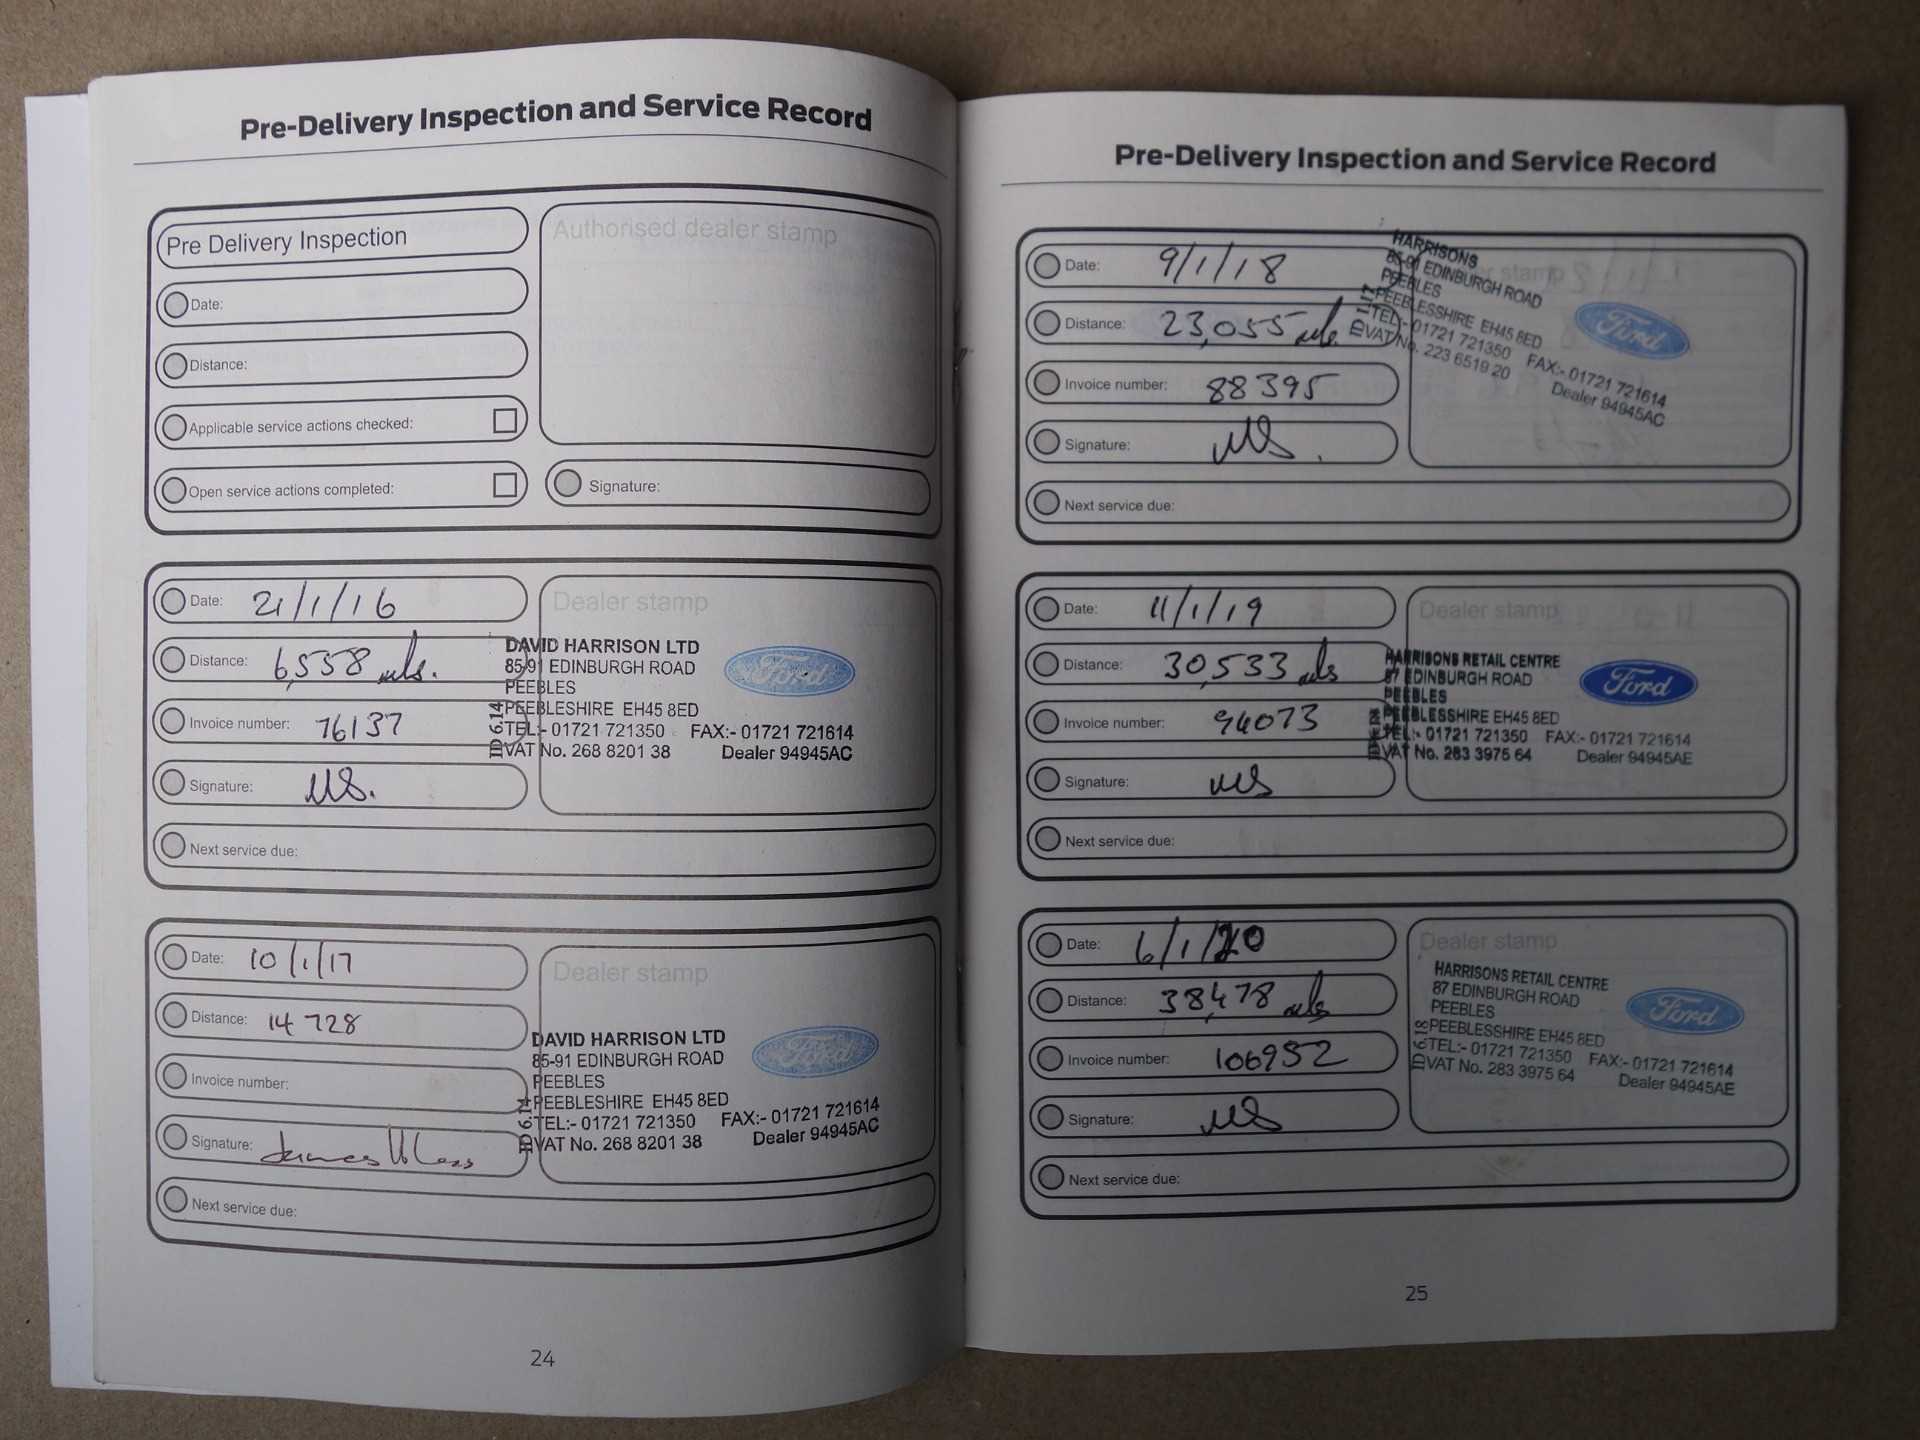 Pre-Delivery Inspection and Service Record
Pre Delivery Inspection
Date:
Distance:
Applicable service actions checked:
Open service actions completed:
Authorised dealer stamp
Signature:
Date: 21/1/16
Distance: 6,558 mls.
Invoice number: 76137
Signature: MS.
Next service due:
Dealer stamp
DAVID HARRISON LTD
85-91 EDINBURGH ROAD
PEEBLES
PEEBLESHIRE EH45 8ED
TEL:- 01721 721350 FAX:- 01721 721614
VAT No. 268 8201 38 Dealer 94945AC
ID 6.14
Ford
Date: 10/1/17
Distance: 14 728
Invoice number:
Signature:
Next service due:
Dealer stamp
DAVID HARRISON LTD
85-91 EDINBURGH ROAD
PEEBLES
PEEBLESHIRE EH45 8ED
TEL:- 01721 721350 FAX:- 01721 721614
VAT No. 268 8201 38 Dealer 94945AC
ID 6.14
Ford
24
Pre-Delivery Inspection and Service Record
Date: 9/1/18
Distance: 23,055 mls.
Invoice number: 88395
Signature: MS.
Next service due:
stamp
HARRISONS
85-91 EDINBURGH ROAD
PEEBLES
PEEBLESSHIRE EH45 8ED
TEL:- 01721 721350 FAX:- 01721 721614
VAT No. 223 6519 20 Dealer 94945AC
ID 1.17
Ford
Date: 11/1/19
Distance: 30,533 mls
Invoice number: 94073
Signature: MS
Next service due:
Dealer stamp
HARRISONS RETAIL CENTRE
87 EDINBURGH ROAD
PEEBLES
PEEBLESSHIRE EH45 8ED
TEL:- 01721 721350 FAX:- 01721 721614
VAT No. 283 3975 64 Dealer 94945AE
Ford
Date: 6/1/20
Distance: 38,478 mls
Invoice number: 106952
Signature: MS
Next service due:
Dealer stamp
HARRISONS RETAIL CENTRE
87 EDINBURGH ROAD
PEEBLES
PEEBLESSHIRE EH45 8ED
TEL:- 01721 721350 FAX:- 01721 721614
VAT No. 283 3975 64 Dealer 94945AE
Ford
25